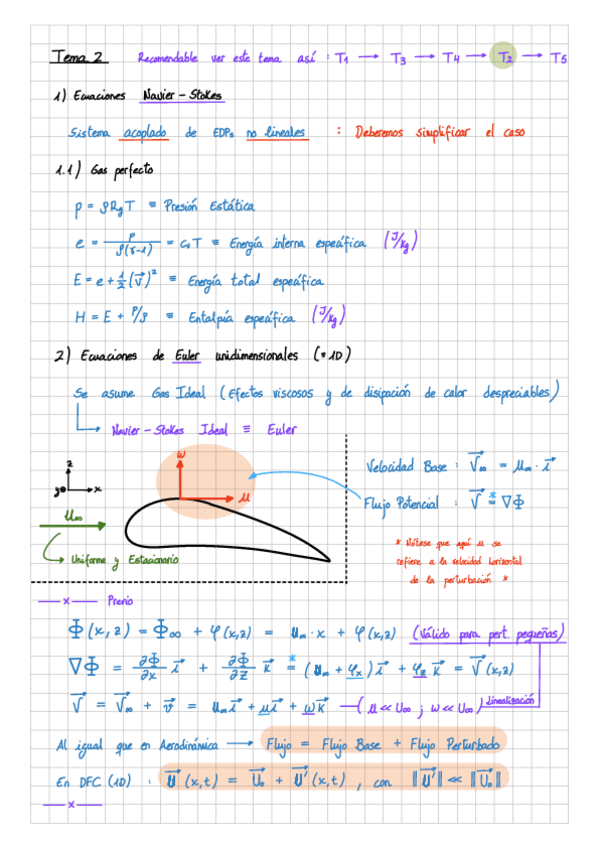 Tema 2 Recomendable ver este tema así : T1 → T3 → T4 → T2 → T5
1) Ecuaciones Navier-Stokes
Sistema acoplado de EDPs no lineales : Deberemos simplificar el caso
1.1) Gas perfecto
p = ρRgT ≡ Presión Estática
e = p/ρ(γ-1) = cvT ≡ Energía interna específica (J/kg)
E = e + 1/2 (v⃗)² ≡ Energía total específica
H = E + p/ρ ≡ Entalpía específica (J/kg)
2) Ecuaciones de Euler unidimensionales (•1D)
Se asume Gas Ideal (Efectos viscosos y de disipación de calor despreciables)
Navier-Stokes Ideal ≡ Euler
z
y x
w
u
U∞
Uniforme y Estacionario
Velocidad Base : V⃗∞ = u∞ · i⃗
Flujo Potencial : V⃗ =* ∇Φ
* Nótese que aquí u se
refiere a la velocidad horizontal
de la perturbación *
—x— Previo
Φ(x,z) = Φ∞ + φ(x,z) = u∞ · x + φ(x,z) (Válido para pert. pequeñas)
∇Φ = ∂Φ/∂x i⃗ + ∂Φ/∂z k⃗ =* (u∞ + φx) i⃗ + φz k⃗ = V⃗(x,z)
V⃗ = V⃗∞ + v⃗ = u∞ i⃗ + u i⃗ + w k⃗ —(u << U∞ ; w << U∞) Linealización
Al igual que en Aerodinámica → Flujo = Flujo Base + Flujo Perturbado
En DFC (1D) : U⃗(x,t) = U⃗0 + U⃗'(x,t) , con ‖U⃗'‖ << ‖U⃗0‖
—x—